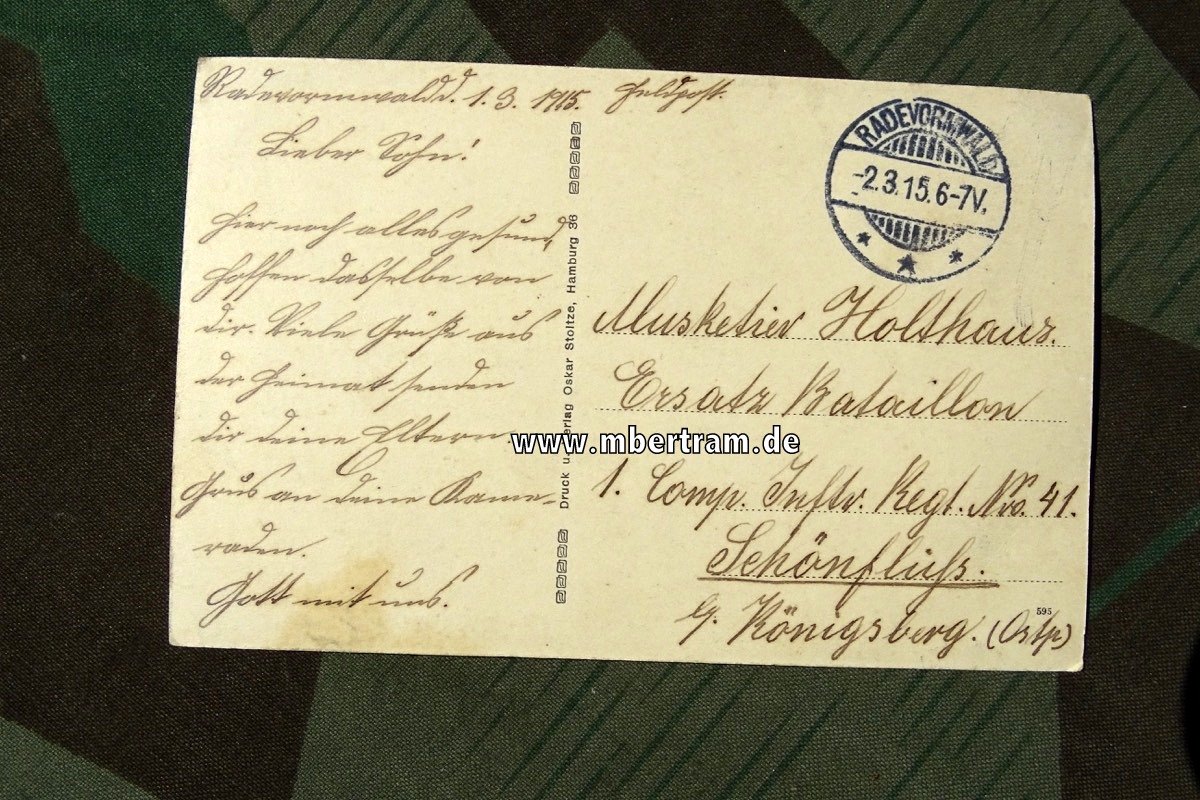 Radevormwald d. 1. 3. 1915. Feldpost.
Lieber Sohn!
Hier noch alles gesund,
hoffen dasselbe von
dir. Viele Grüße aus
der Heimat senden
dir deine Eltern.
Grus an deine Kame-
raden.
Gott mit uns.
Druck u. Verlag Oskar Stoltze, Hamburg 36
RADEVORMWALD
-2.3.15.6-7V.
Musketier Holthaus.
Ersatz Bataillon
1. Comp. Inftr. Regt. Nro. 41.
Schönfließ.
b/. Königsberg. (Ostp)
595
www.mbertram.de